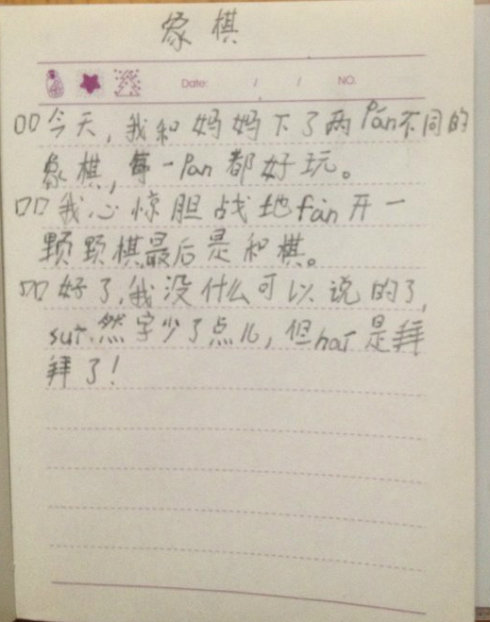 象棋
Date: / / NO.
今天,我和妈妈下了两Pán不同的
象棋,每一Pan都好玩。
我心惊胆战地fān开一
颗颗棋最后是和棋。
好了,我没什么可以说的了,
suī然字少了点儿,但hai是拜
拜了!